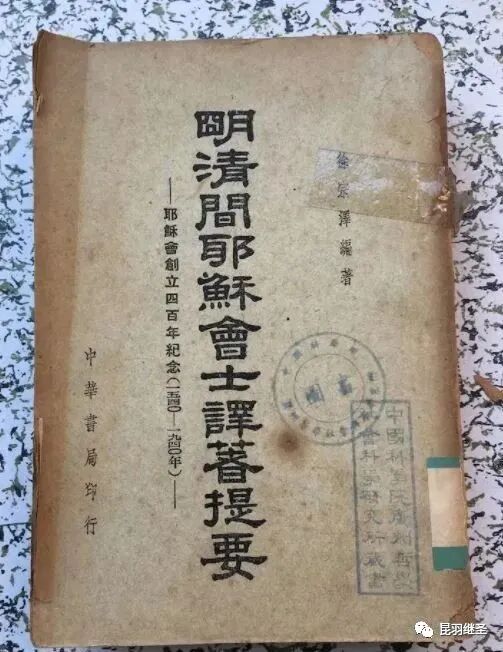 徐宗澤編著
朙清間耶穌會士譯著提要
—耶穌會創立四百年紀念(一五四〇—一九四〇年)—
中華書局印行
圖書
中國科學院廣州哲學
社會科學研究所藏書
昆羽继圣